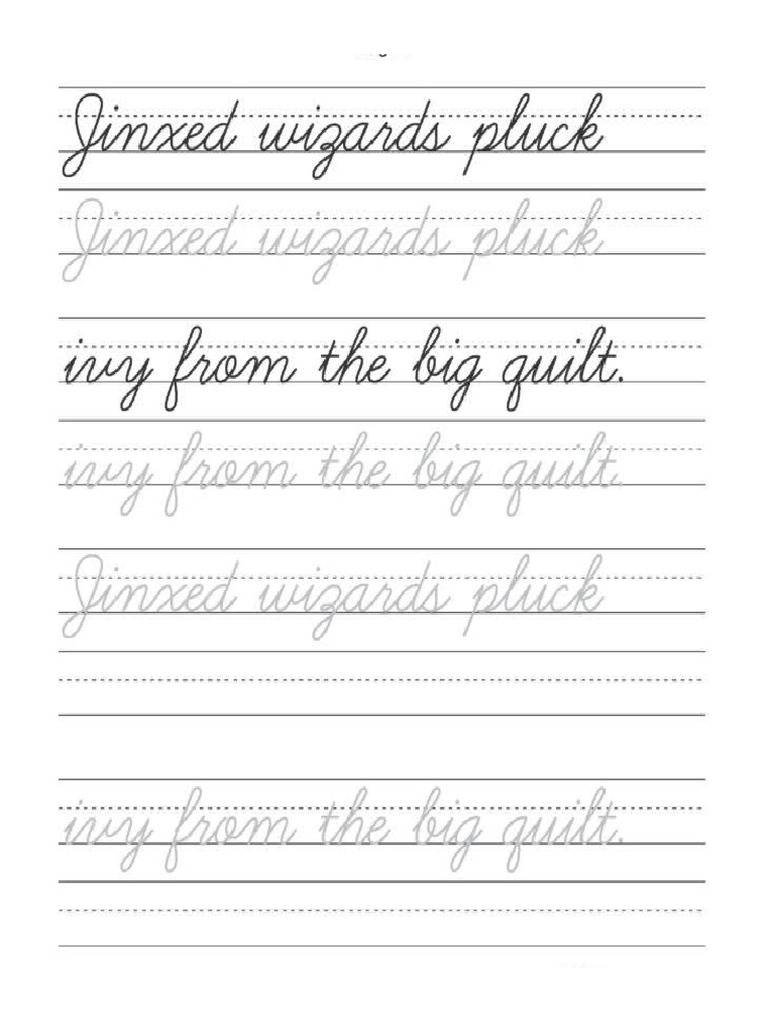 Jinxed wizards pluck
Jinxed wizards pluck
ivy from the big quilt.
ivy from the big quilt.
Jinxed wizards pluck
ivy from the big quilt.